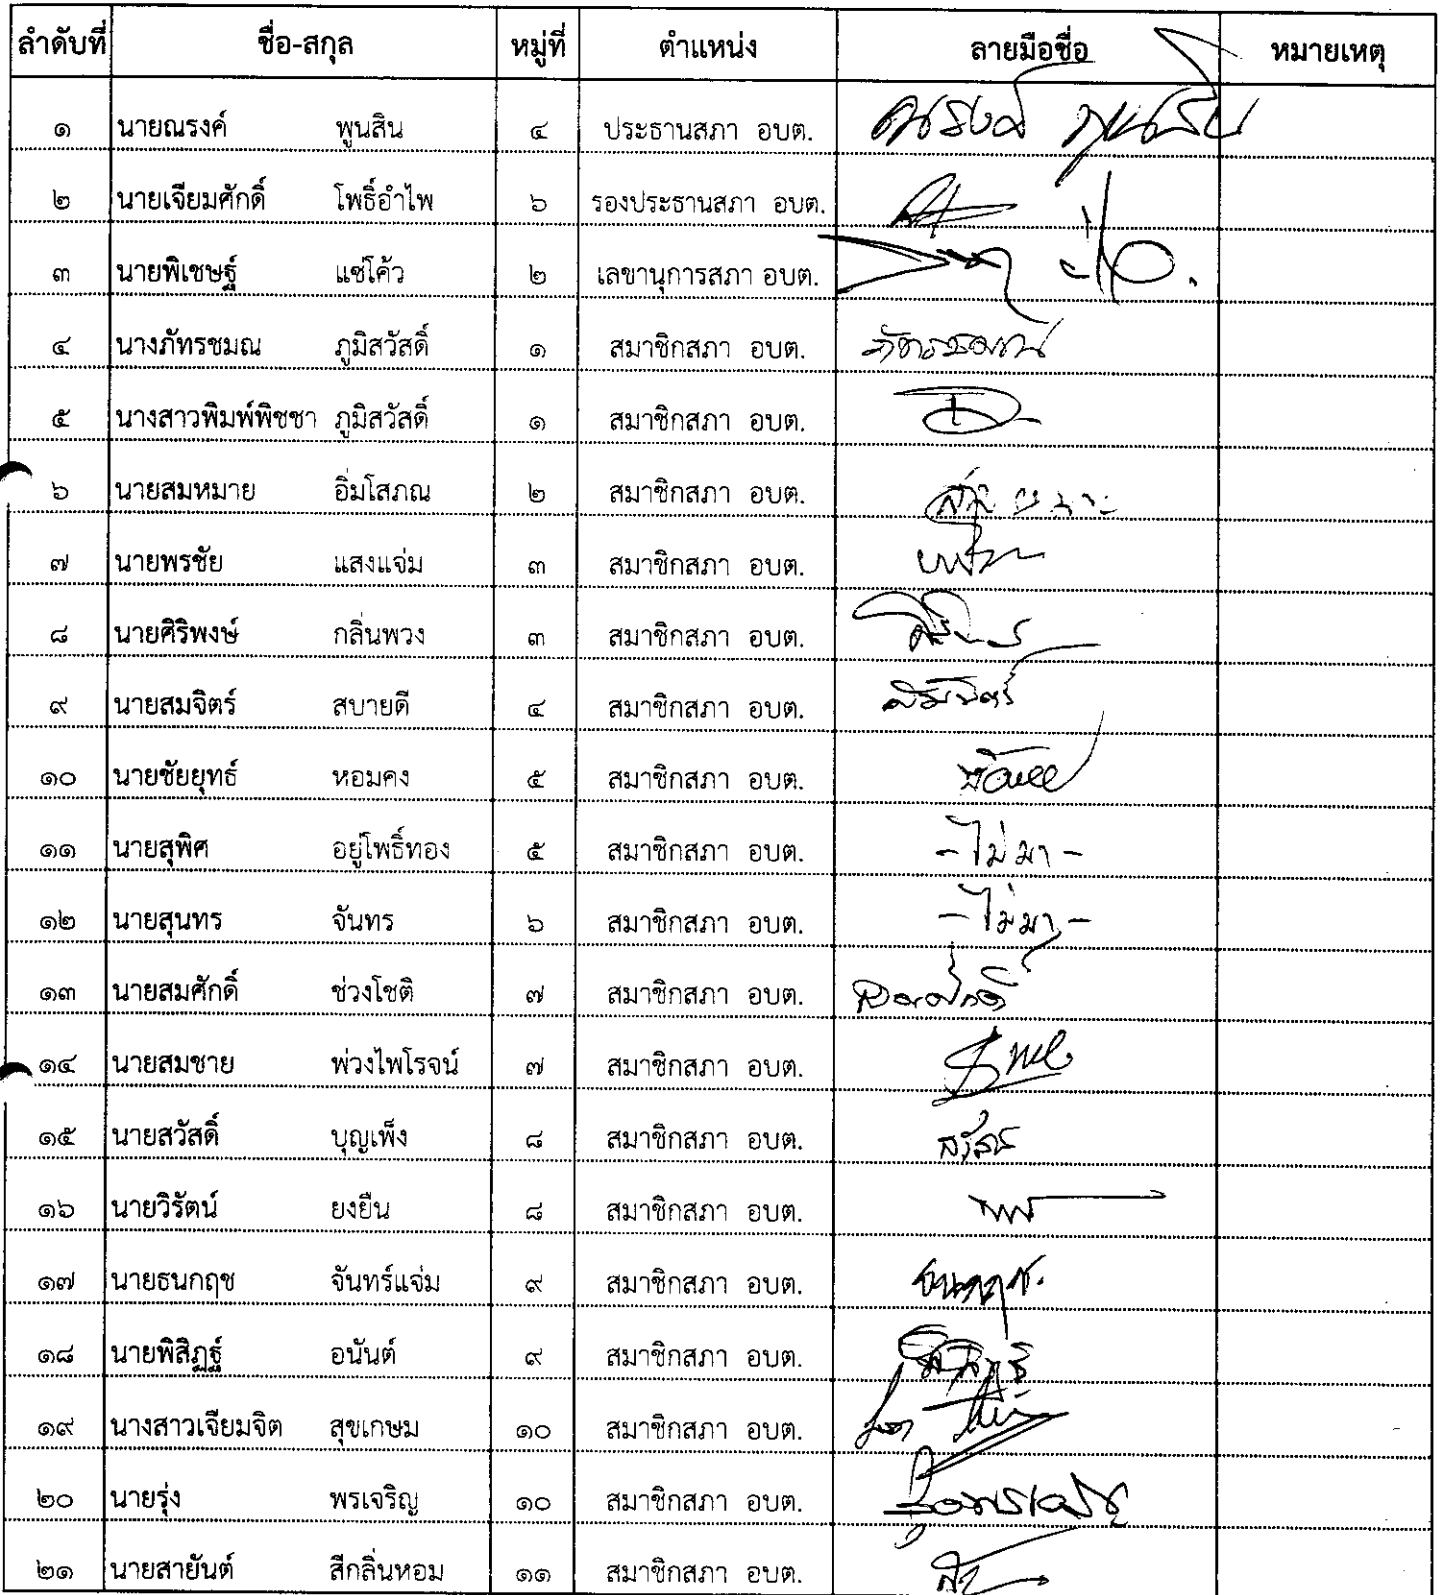 ลำดับที่ ชื่อ-สกุล หมู่ที่ ตำแหน่ง ลายมือชื่อ หมายเหตุ
๑ นายณรงค์ พูนสิน ๔ ประธานสภา อบต. ณรงค์ พูนสิน
๒ นายเจียมศักดิ์ โพธิ์อำไพ ๖ รองประธานสภา อบต.
๓ นายพิเชษฐ์ แซ่โค้ว ๒ เลขานุการสภา อบต.
๔ นางภัทรชมณ ภูมิสวัสดิ์ ๑ สมาชิกสภา อบต.
๕ นางสาวพิมพ์พิชชา ภูมิสวัสดิ์ ๑ สมาชิกสภา อบต.
๖ นายสมหมาย อิ่มโสภณ ๒ สมาชิกสภา อบต.
๗ นายพรชัย แสงแจ่ม ๓ สมาชิกสภา อบต.
๘ นายศิริพงษ์ กลิ่นพวง ๓ สมาชิกสภา อบต.
๙ นายสมจิตร์ สบายดี ๔ สมาชิกสภา อบต. สมจิตร์
๑๐ นายชัยยุทธ์ หอมคง ๕ สมาชิกสภา อบต.
๑๑ นายสุพิศ อยู่โพธิ์ทอง ๕ สมาชิกสภา อบต. -ไม่มา-
๑๒ นายสุนทร จันทร ๖ สมาชิกสภา อบต. -ไม่มา-
๑๓ นายสมศักดิ์ ช่วงโชติ ๗ สมาชิกสภา อบต. สมศักดิ์
๑๔ นายสมชาย พ่วงไพโรจน์ ๗ สมาชิกสภา อบต.
๑๕ นายสวัสดิ์ บุญเพ็ง ๘ สมาชิกสภา อบต.
๑๖ นายวิรัตน์ ยงยืน ๘ สมาชิกสภา อบต.
๑๗ นายธนกฤช จันทร์แจ่ม ๙ สมาชิกสภา อบต. ธนกฤช.
๑๘ นายพิสิฏฐ์ อนันต์ ๙ สมาชิกสภา อบต.
๑๙ นางสาวเจียมจิต สุขเกษม ๑๐ สมาชิกสภา อบต.
๒๐ นายรุ่ง พรเจริญ ๑๐ สมาชิกสภา อบต.
๒๑ นายสายันต์ สีกลิ่นหอม ๑๑ สมาชิกสภา อบต.